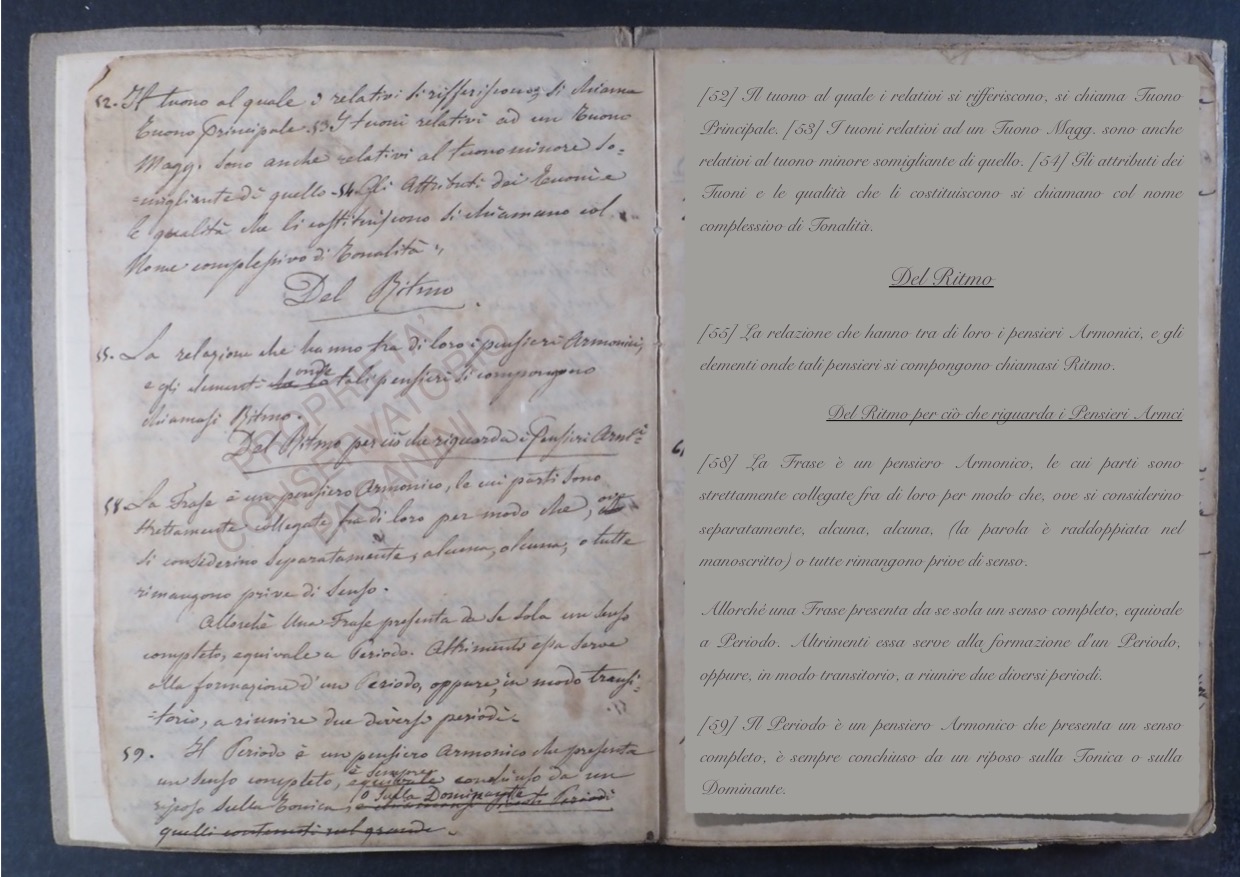 52. Il tuono al quale i relativi si rifferiscono, si chiama
Tuono Principale. 53 I tuoni relativi ad un Tuono
Magg. sono anche relativi al tuono minore so=
=migliante di quello. 54. Gli Attributi dei Tuoni e
le qualità che li costituiscono si chiamano col
Nome complessivo di Tonalità.
Del Ritmo.
55. La relazione che hanno tra di loro i pensieri Armonici,
e gli elementi onde tali pensieri si compongono
chiamasi Ritmo.
Del Ritmo per ciò che riguarda i Pensieri Armci
58 La Frase è un pensiero Armonico, le cui parti sono
strettamente collegate fra di loro per modo che, ove
si considerino separatamente, alcuna, alcuna, o tutte
rimangono prive di senso.
Allorchè Una Frase presenta da se sola un senso
completo, equivale a Periodo. Altrimenti essa serve
alla formazione d'un Periodo, oppure, in modo transi=
=torio, a riunire due diversi periodi.
59. Il Periodo è un pensiero Armonico che presenta
un senso completo, è sempre equivale conchiuso da un
riposo sulla Tonica, o sulla Dominante Periodi
quelli contenuti sul grande.
PROPRIETA'
CONSERVATORIO
PAGANINI
[52] Il tuono al quale i relativi si rifferiscono, si chiama Tuono
Principale. [53] I tuoni relativi ad un Tuono Magg. sono anche
relativi al tuono minore somigliante di quello. [54] Gli attributi dei
Tuoni e le qualità che li costituiscono si chiamano col nome
complessivo di Tonalità.
Del Ritmo
[55] La relazione che hanno tra di loro i pensieri Armonici, e gli
elementi onde tali pensieri si compongono chiamasi Ritmo.
Del Ritmo per ciò che riguarda i Pensieri Armci
[58] La Frase è un pensiero Armonico, le cui parti sono
strettamente collegate fra di loro per modo che, ove si considerino
separatamente, alcuna, alcuna, (la parola è raddoppiata nel
manoscritto) o tutte rimangono prive di senso.
Allorché una Frase presenta da se sola un senso completo, equivale
a Periodo. Altrimenti essa serve alla formazione d'un Periodo,
oppure, in modo transitorio, a riunire due diversi periodi.
[59] Il Periodo è un pensiero Armonico che presenta un senso
completo, è sempre conchiuso da un riposo sulla Tonica o sulla
Dominante.